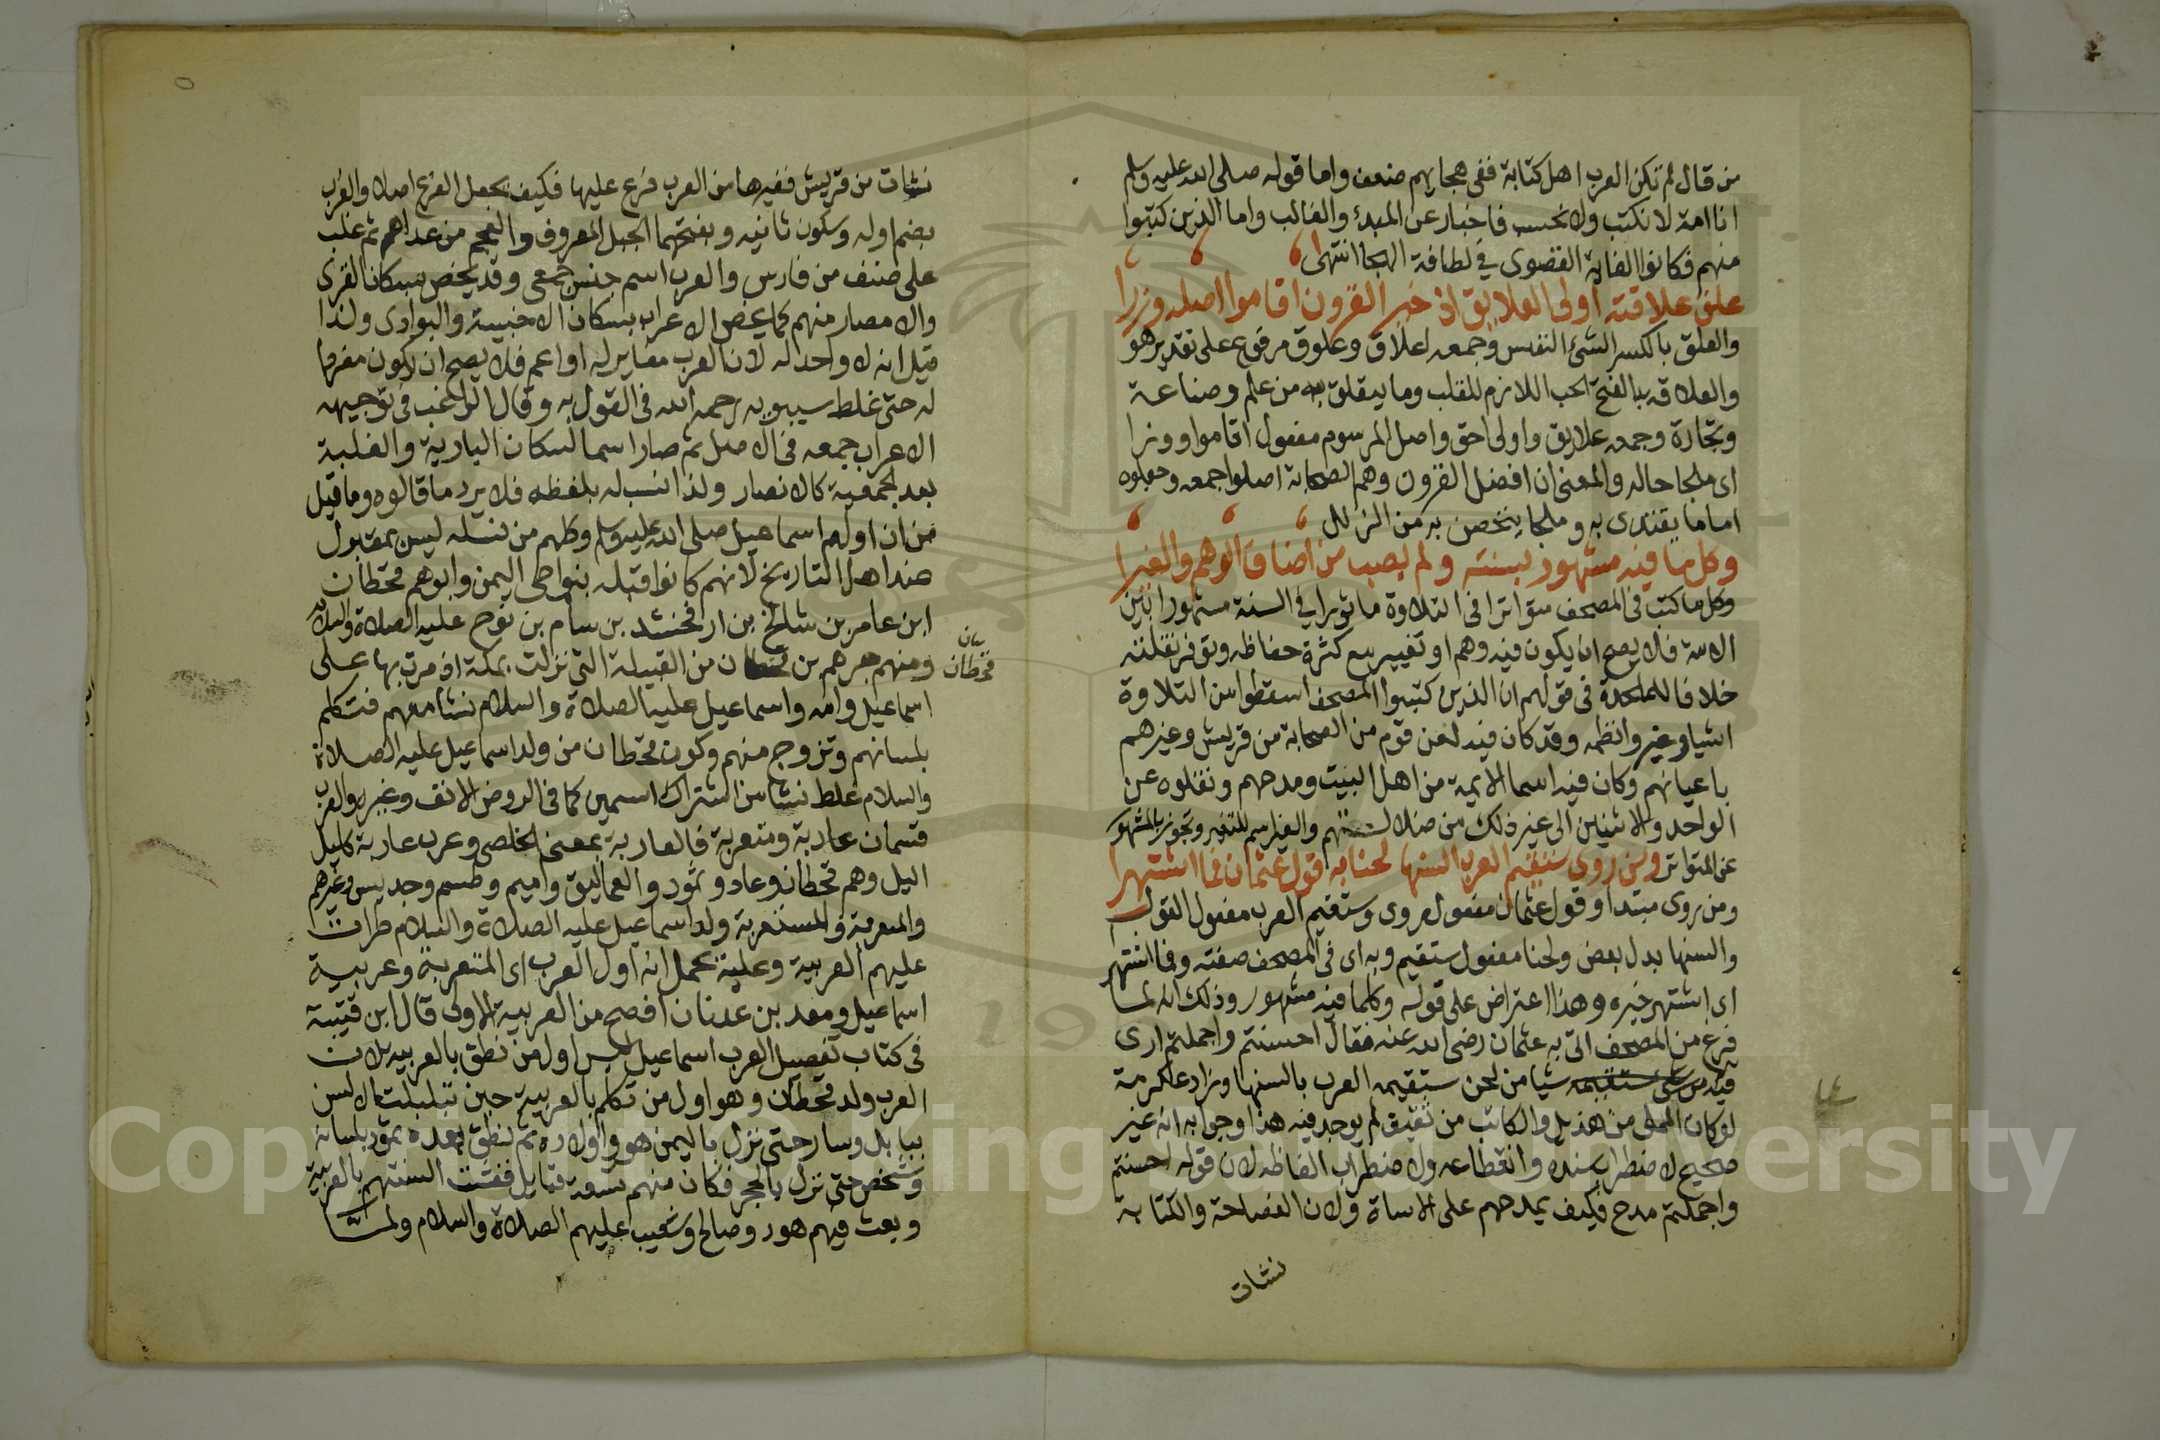 من قال لم تكن العرب اهل كتابة ففى هجايهم ضعف واما قوله صلى الله عليه وسلم
انا امة لا نكتب ولا نحسب فاخبار عن المبدئ والغالب واما الذين كتبوا
منهم فكانوا الغاية القصوى في لطافة الهجا انتهى
علق علاقته اولى العلايق اذ خير القرون اقاموا اصله وزرا
والعلق بالكسر الشئ النفيس وجمعه اعلاق وعلوق مرفوع على تقدير هو
والعلاقه بالفتح الحب اللازم للقلب وما يتعلق به من علم وصناعة
وتجارة وجمعه علايق واولى احق واصل المرسوم مفعول اقاموا وزرا
اى ملجا حاله والمعنى ان افضل القرون وهم الصحابة اصلوا جمعه وجعلوه
اماما يقتدى به وملجا يتحصن به من الزلل
وكل ما فيه مشهور بسنته ولم يصب من اضاف الوهم والغيرا
وكل ما كتب فى المصحف متواترا فى التلاوة ماثورا في السنة مشهورا بين
الامة فلا يصح ان يكون فيه وهم او تغيير مع كثرة حفاظه وتوفر نقلته
خلافا للملحدة فى قولهم ان الذين كتبوا المصحف اسقطوا من التلاوة
اشيا وغيروا نظمه وقد كان فيه لعن قوم من الصحابة من قريش وغيرهم
باعيانهم وكان فيه اسما الايمة من اهل البيت ومدحهم ونقلوه عن
الواحد والاثنين الى غير ذلك من ضلالتهم والغير اسم للتغير وتجوز بالمشهور
عن المتواتر ومن روى ستقيم العرب السنها لحنا به قول عثمان فما اشتهرا
ومن روى مبتدا وقول عثمان مفعول روى وستقيم العرب مفعول القول
والسنها بدل بعض ولحنا مفعول ستقيم وبه اى فى المصحف صفته وفما اشتهر
اى اشتهر خبره وهذا اعتراض على قوله وكلما فيه مشهور وذلك انه لما
فرغ من المصحف اتى به عثمان رضى الله عنه فقال احسنتم واجملتم ارى
فيه شيا من لحن ستقيمه العرب بالسنها وزاد عكرمة
لو كان المملى من هذيل والكاتب من ثقيف لم يوجد فيه هذا وجوابه انه غير
صحيح لاضطراب سنده وانقطاعه ولاضطراب الفاظه لان قوله احسنتم
واجملتم مدح فكيف يمدحهم على الاساة ولان الفصاحة والكتابة
نشات
نشات من قريش فغيرها من العرب فرع عليها فكيف يجعل الفرع اصلا والعرب
بضم اوله وسكون ثانيه وبفتحهما الجيل المعروف والعجم من عداهم ثم غلب
على صنف من فارس والعرب اسم جنس جمعى وقد يخص بسكان القرى
والامصار منهم كما يخص الاعراب بسكان الاخبية والبوادى ولذا
قيل انه لا واحد له لان العرب مغاير له او اعم فلا يصح ان يكون مفردا
له حتى غلط سيبويه رحمه الله فى القول به وقال الراغب فى توجيهه
الاعراب جمعه فى الاصل ثم صار اسما لسكان البادية والغلبة
بعد الجمعية كالانصار ولذا انسب له بلفظه فلا يرد ما قالوه وما قيل
من ان اولهم اسماعيل صلى الله عليه وسلم وكلهم من نسله ليس بمقبول
عند اهل التاريخ لانهم كانوا قبله بنواحى اليمن وابوهم قحطان
ابن عامر بن شالخ بن ارفخشد بن سام بن نوح عليه الصلاة والسلام
ومنهم جرهم بن قحطان من القبيلة التى نزلت بمكة اذ مرت بها على
بيان
قحطان
اسماعيل وامه واسماعيل عليه الصلاة والسلام نشا معهم فتكلم
بلسانهم وتزوج منهم وكون قحطان من ولد اسماعيل عليه الصلاة
والسلام غلط نشا من اشتراك اسمين كما فى الروض الانف وغيره والعرب
قسمان عاربة ومتعربة فالعاربة بمعنى الخلص وعرب عاربة كليل
اليل وهم قحطان وعاد وثمود والعماليق واميم وطسم وجديس وغيرهم
والمتعربة والمستعربة ولد اسماعيل عليه الصلاة والسلام طرات
عليهم العربية وعليه يحمل انه اول العرب اى المتعربة وعربية
اسماعيل ومعد بن عدنان افصح من العربية الاولى قال ابن قتيبة
فى كتاب تفضيل العرب اسماعيل ليس اول من نطق بالعربيه بلان
العرب ولد قحطان وهو اول من تكلم بالعربية حين تبلبلت الالسن
ببابل وسار حتى نزل باليمن هو واولاده ثم نطق بعده ثمود بلسانه
وشخص حتى نزل بالحجر فكان منهم تسعة قبايل ففتقت السنتهم بالعربية
وبعث فيهم هود وصالح وشعيب عليهم الصلاة والسلام ولما
Cop King University